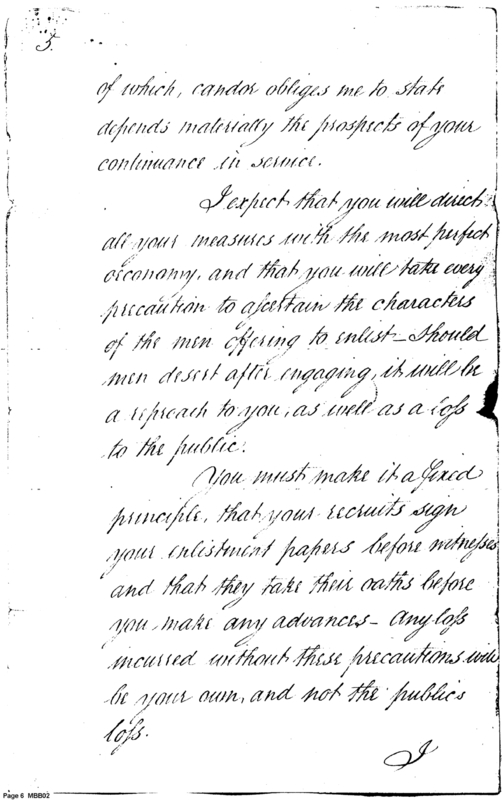 5.
of which, candor obliges me to state
depends materially the prospects of your
continuance in service.
I expect that you will direct
all your measures with the most perfect
oeconomy, and that you will take every
precaution to ascertain the characters
of the men offering to enlist— Should
men desert after engaging, it will be
a reproach to you, as well as a loss
to the public.
You must make it a fixed
principle, that your recruits sign
your enlistment papers before witnesses
and that they take their oaths before
you make any advances— Any loss
incurred without these precautions will
be your own, and not the publics
loss.
I
Page 6 MBB02